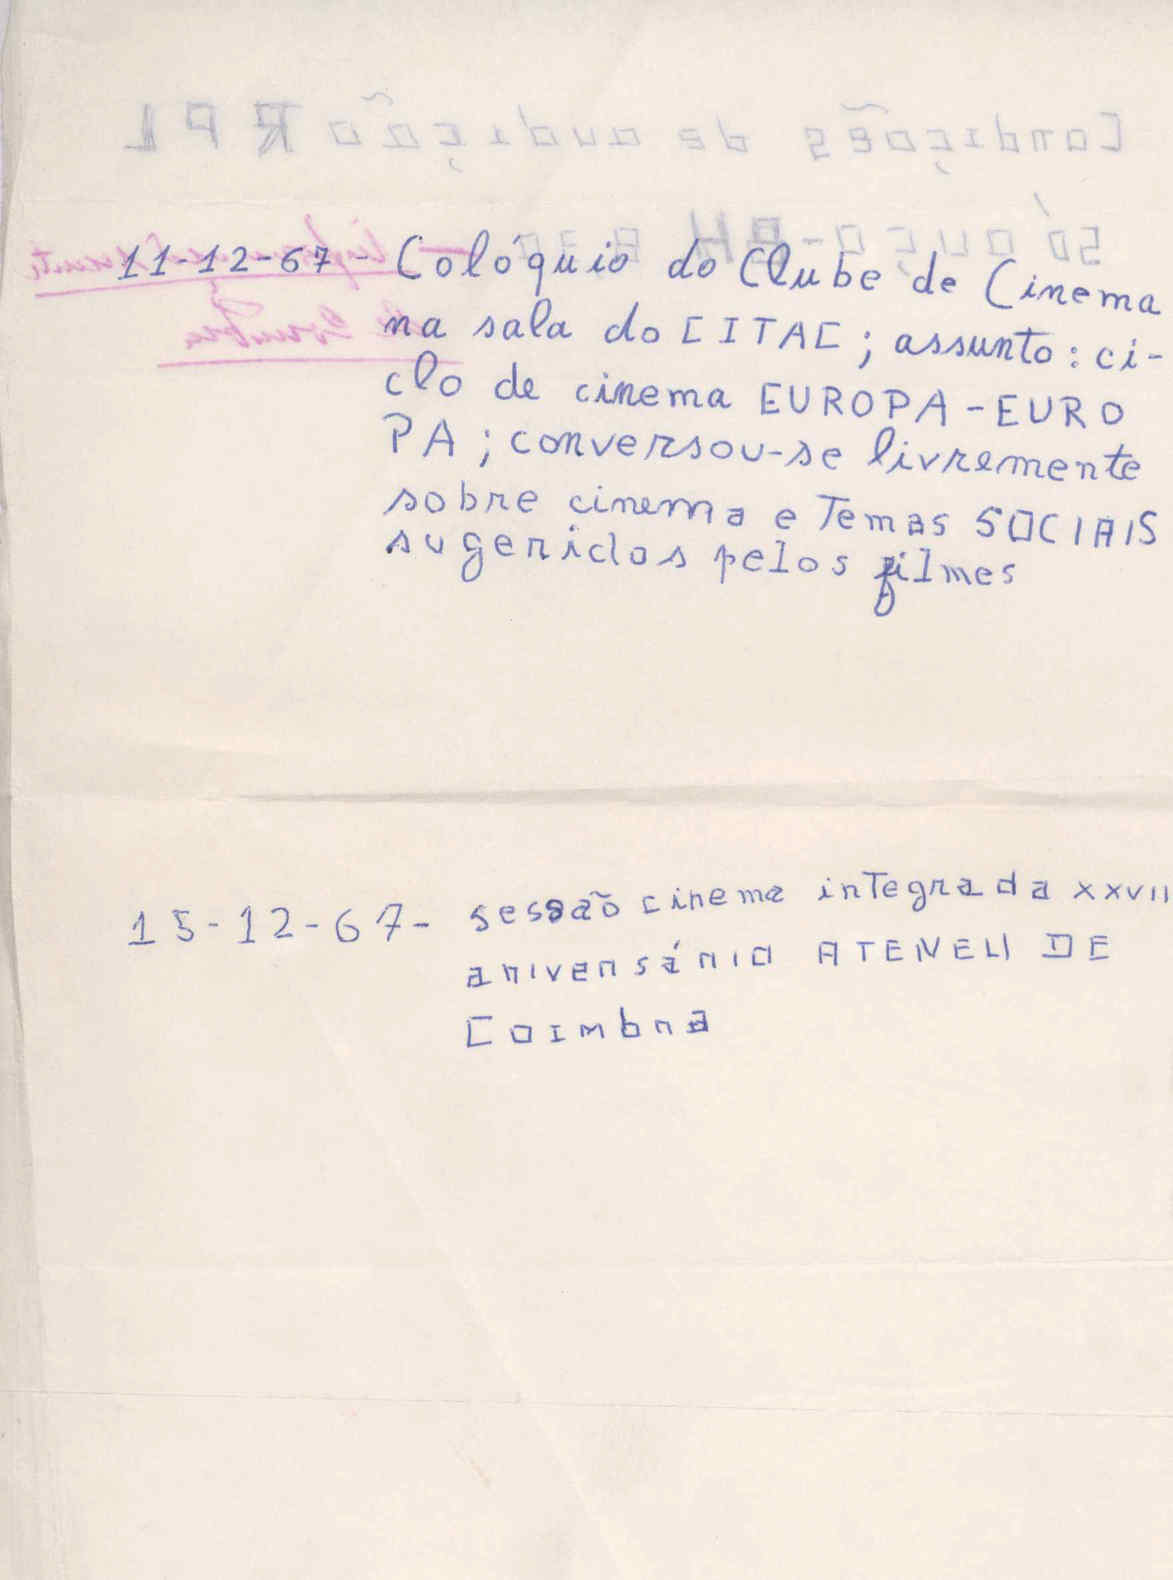 Condições de audição RPL
só ouço-a
11-12-67- Colóquio do Clube de Cinema
na sala do CITAC; assunto: ci-
clo de cinema EUROPA-EURO
PA; conversou-se livremente
sobre cinema e Temas SOCIAIS
sugeridos pelos filmes
15-12-67- sessão cinema integrada XXVII
aniversário ATENEU DE
Coimbra